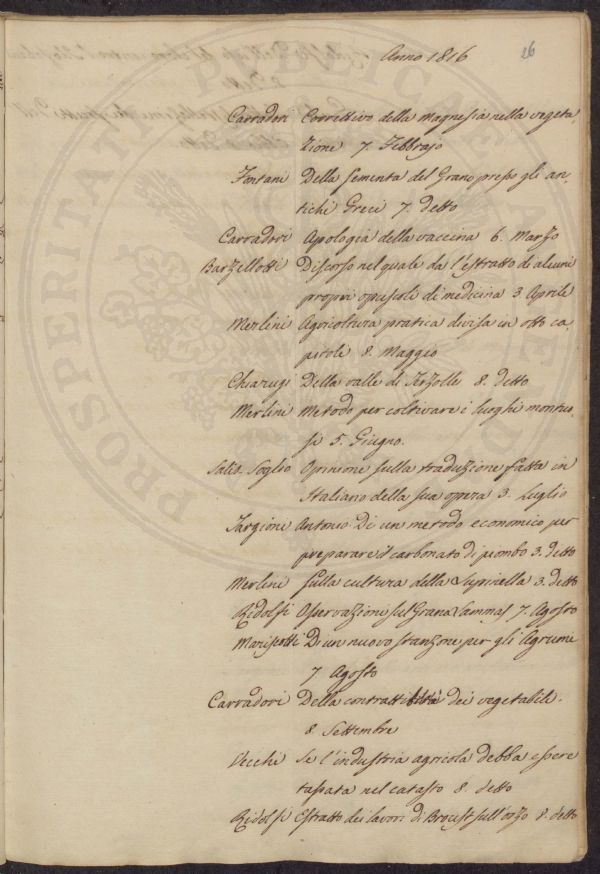 Anno 1816
26
Carradori Correttivo della Magnesia nella vegeta-
zione 7. Febbrajo
Fontani Della sementa del Grano presso gli an-
tichi Greci 7. detto
Carradori Apologia della vaccina 6. Marzo
Barzellotti Discorso nel quale da l'estratto di alcuni
propri opuscoli di medicina 3. Aprile
Merlini Agricoltura pratica divisa in otto ca-
pitoli 8. Maggio
Chiarugi Della valle di Terzolle 8. detto
Merlini Metodo per coltivare i luoghi montuo-
si 5. Giugno.
Salis. Soglio Opinione sulla traduzione fatta in
Italiano della sua opera 3. Luglio
Targioni Antonio Di un metodo economico per
preparare il carbonato di piombo 3. detto
Merlini Sulla cultura della Lupinella 3. detto
Ridolfi Osservazioni sul Grana Lammas 7. Agosto
Mariscotti Di un nuovo stanzone per gli Agrumi
7 Agosto
Carradori Della contrattibilità dei vegetabili.
8 Settembre
Vecchi Se l'industria agricola debba essere
tassata nel catasto 8 detto
Ridolfi Estratto dei lavori di Proust sull'orzo 8. detto
PROSPERITATI PUBLICAE AUGENDAE